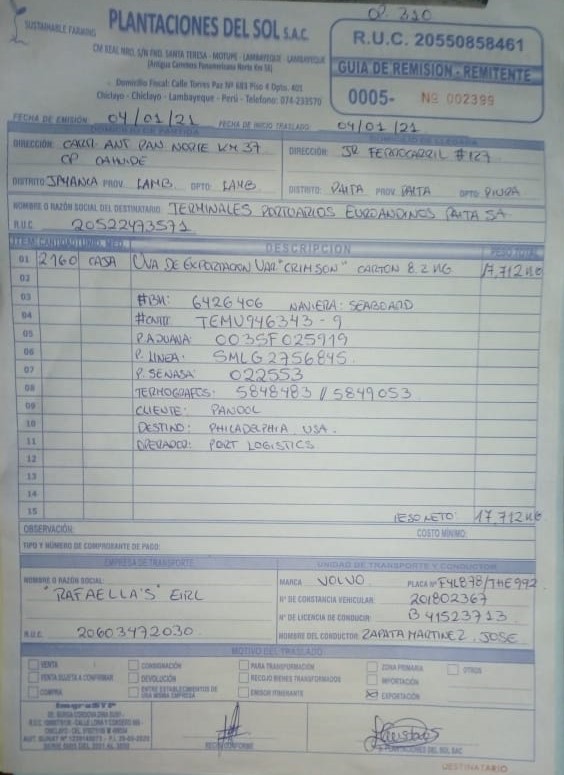 OP. 320
SUSTAINABLE FARMING
PLANTACIONES DEL SOL S.A.C.
CM REAL NRO. S/N FND. SANTA TERESA - MOTUPE - LAMBAYEQUE - LAMBAYEQUE
(Antigua Carretera Panamericana Norte Km 56)
Domicilio Fiscal: Calle Torres Paz Nº 683 Piso 4 Dpto. 401
Chiclayo - Chiclayo - Lambayeque - Perú - Telefono: 074-233570
R.U.C. 20550858461
GUIA DE REMISION - REMITENTE
0005- Nº 002399
FECHA DE EMISIÓN: 04/01/21 FECHA DE INICIO TRASLADO: 04/01/21
DOMICILIO DE PARTIDA DOMICILIO DE LLEGADA
DIRECCIÓN: CARR. ANT PAN NORTE KM 37
CP CAHUIDE
DIRECCIÓN: JR FERROCARRIL #127
DISTRITO: JAYANCA PROV. LAMB. DPTO: LAMB. DISTRITO: PAITA PROV. PAITA DPTO: PIURA
NOMBRE O RAZÓN SOCIAL DEL DESTINATARIO: TERMINALES PORTUARIOS EUROANDINOS PAITA SA.
R.U.C. 20522473571
ITEM CANTIDAD UNID. MED. DESCRIPCION PESO TOTAL
01 2160 CAJA UVA DE EXPORTACION VAR. "CRIMSON" CARTON 8.2 KG 17,712 KG
02
03 #BK: 6426406 NAVIERA: SEABOARD
04 #CNTR: TEMU946343-9
05 P.ADUANA: 003SF025919
06 P. LINEA: SMLG2756845.
07 P. SENASA: 022553
08 TERMOGRAFOS: 5848483 // 5849053
09 CLIENTE: PANDOL
10 DESTINO: PHILADELPHIA USA.
11 OPERADOR: PORT LOGISTICS
12
13
14
15 PESO NETO: 17,712 KG
OBSERVACIÓN: COSTO MÍNIMO:
TIPO Y NÚMERO DE COMPROBANTE DE PAGO:
EMPRESA DE TRANSPORTE UNIDAD DE TRANSPORTE Y CONDUCTOR
NOMBRE O RAZÓN SOCIAL:
"RAFAELLA'S" EIRL
R.U.C. 20603472030
MARCA VOLVO PLACA Nº F4L878/THE992
Nº DE CONSTANCIA VEHICULAR: 201802367
Nº DE LICENCIA DE CONDUCIR: B41523713
NOMBRE DEL CONDUCTOR: ZAPATA MARTINEZ JOSE
MOTIVO DEL TRASLADO:
VENTA CONSIGNACIÓN PARA TRANSFORMACIÓN ZONA PRIMARIA OTROS
VENTA SUJETA A CONFIRMAR DEVOLUCIÓN RECOJO BIENES TRANSFORMADOS IMPORTACIÓN
COMPRA ENTRE ESTABLECIMIENTOS DE UNA MISMA EMPRESA EMISOR ITINERANTE EXPORTACIÓN
RECIBI CONFORME
PLANTACIONES DEL SOL SAC
DESTINATARIO